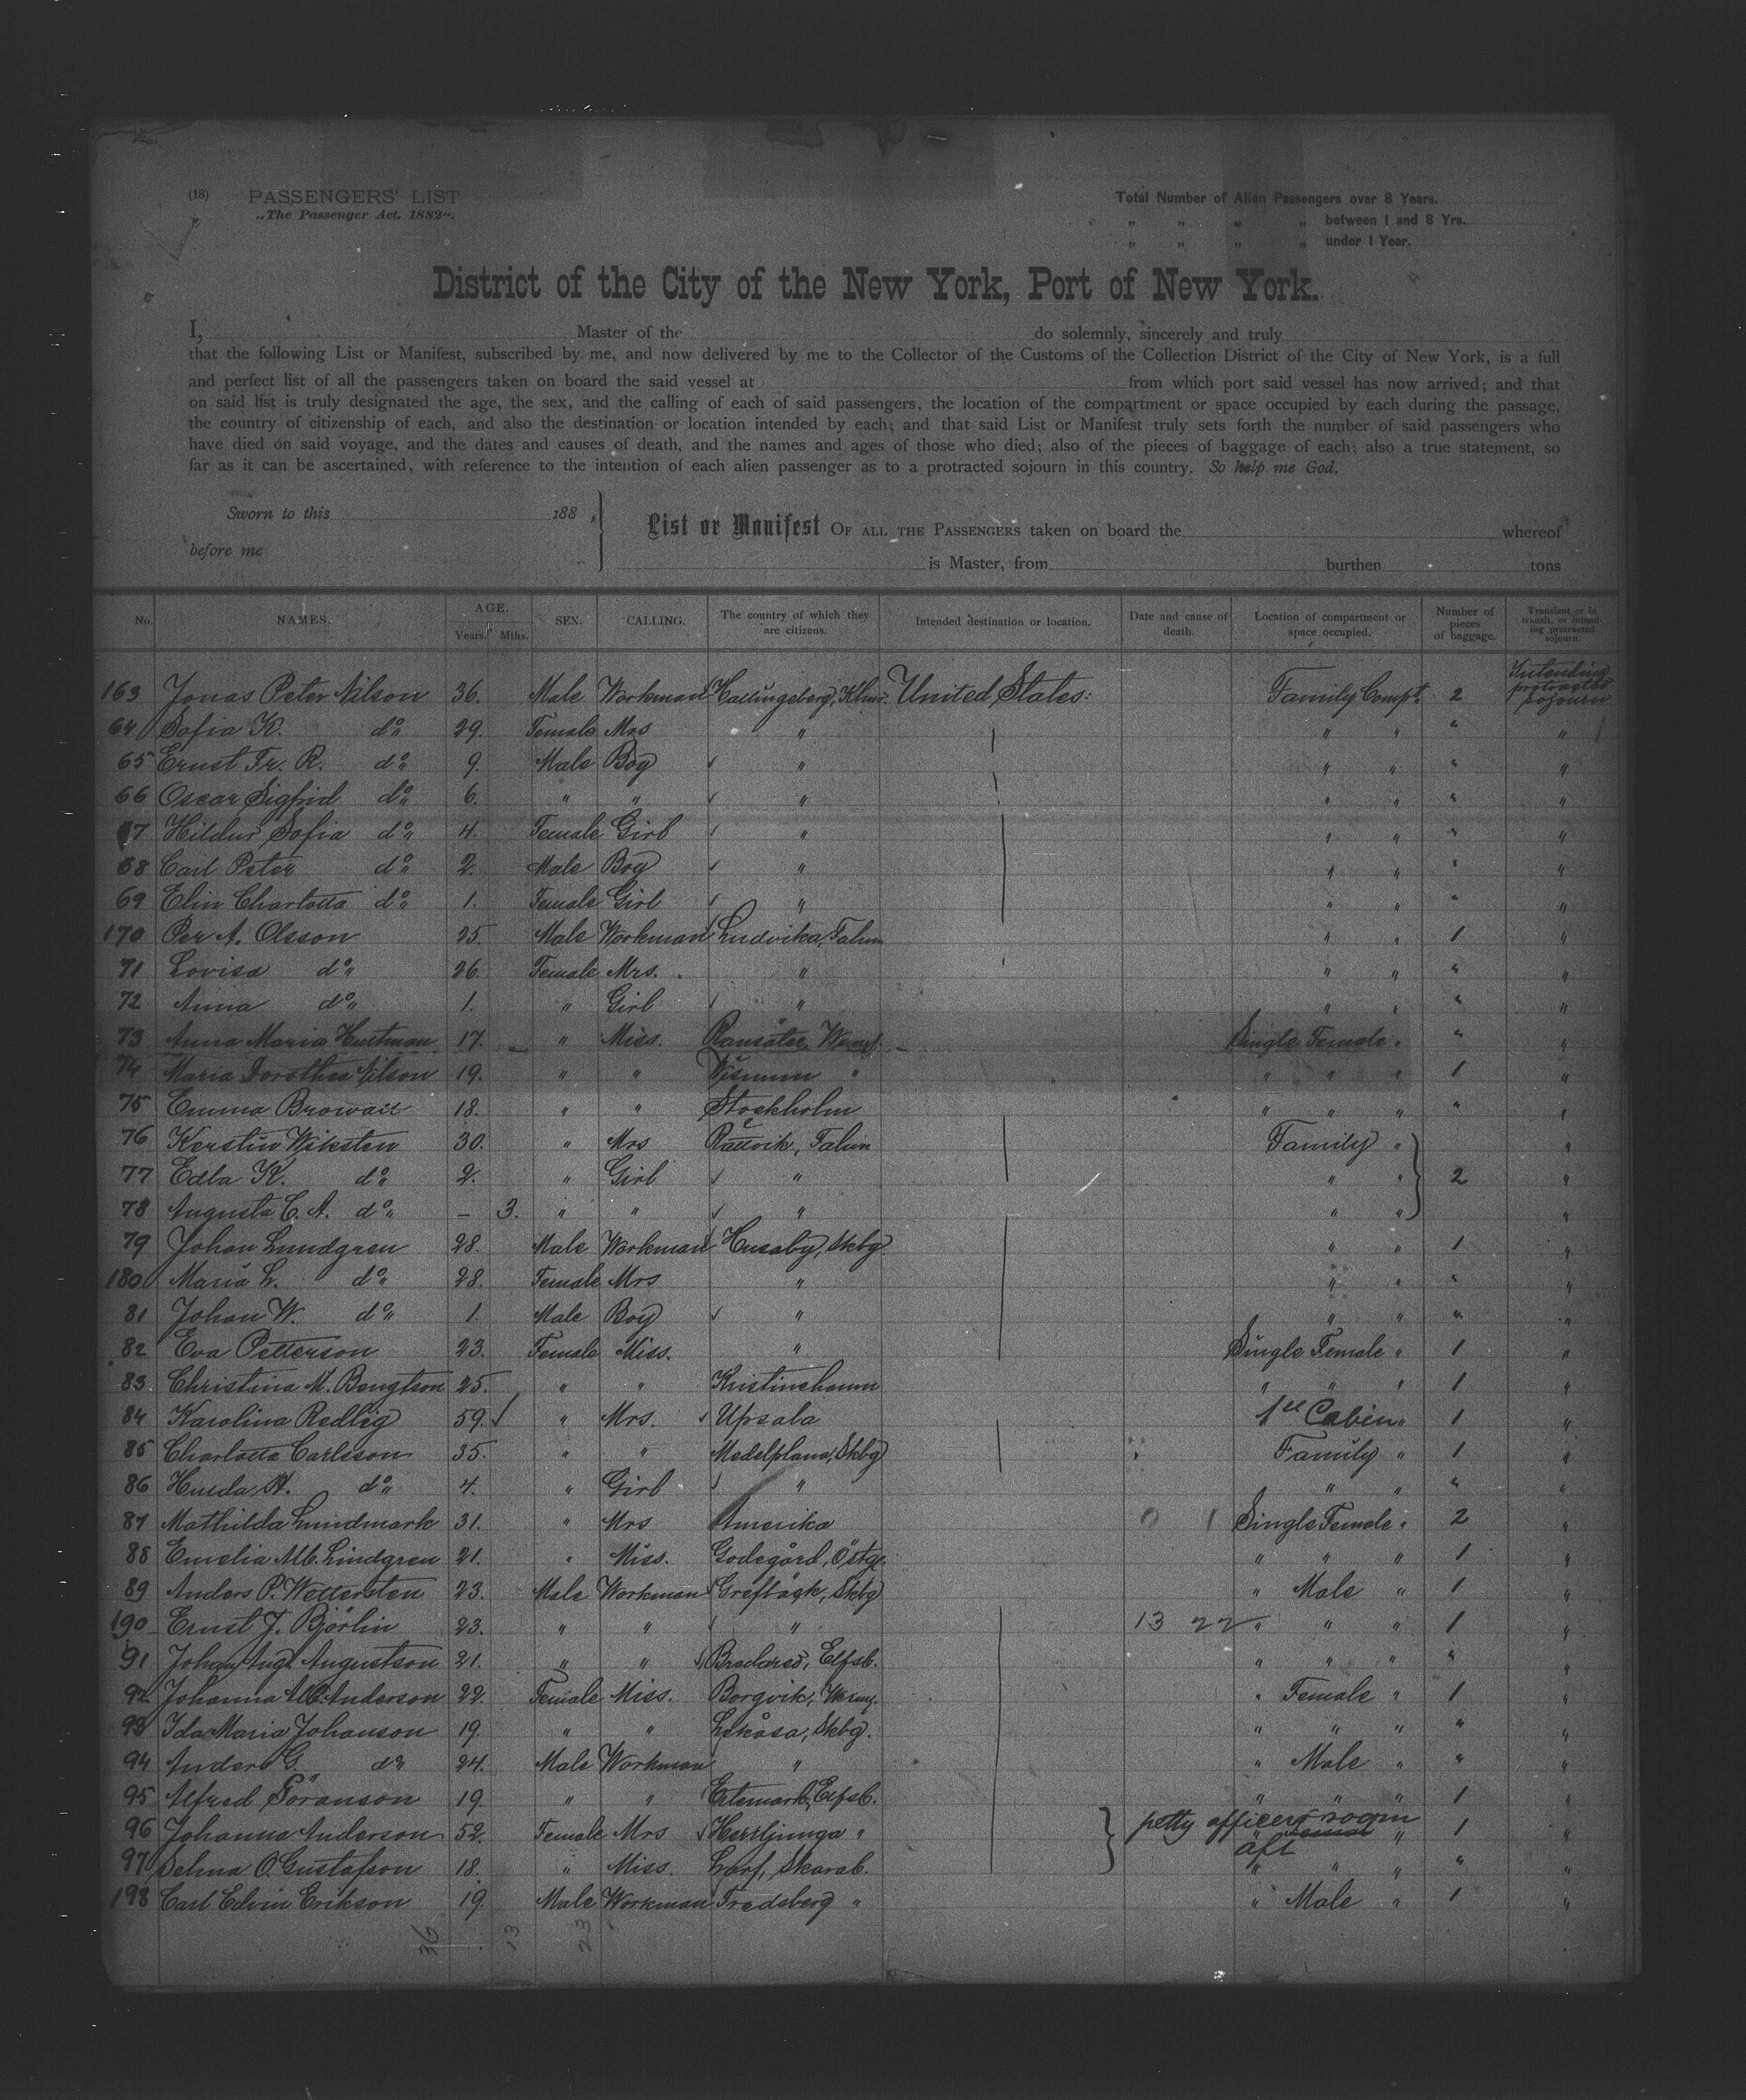 (18) PASSENGERS' LIST
„The Passenger Act, 1882“.
Total Number of Alien Passengers over 8 Years.
„ „ „ „ between 1 and 8 Yrs.
„ „ „ „ under 1 Year.
District of the City of the New York, Port of New York.
I, Master of the do solemnly, sincerely and truly
that the following List or Manifest, subscribed by me, and now delivered by me to the Collector of the Customs of the Collection District of the City of New York, is a full
and perfect list of all the passengers taken on board the said vessel at from which port said vessel has now arrived; and that
on said list is truly designated the age, the sex, and the calling of each of said passengers, the location of the compartment or space occupied by each during the passage,
the country of citizenship of each, and also the destination or location intended by each; and that said List or Manifest truly sets forth the number of said passengers who
have died on said voyage, and the dates and causes of death, and the names and ages of those who died; also of the pieces of baggage of each; also a true statement, so
far as it can be ascertained, with reference to the intention of each alien passenger as to a protracted sojourn in this country. So help me God.
Sworn to this 188 ,
before me
List or Manifest OF ALL THE PASSENGERS taken on board the whereof
is Master, from burthen tons
No. NAMES. AGE. Years. Mths. SEX. CALLING. The country of which they are citizens. Intended destination or location. Date and cause of death. Location of compartment or space occupied. Number of pieces of baggage. Transient or in transit, or intending protracted sojourn.
163 Jonas Peter Nilson 36. Male Workman Hallingeberg, Klmr. United States: Family Compt. 2 Intending protracted sojourn
64 Sofia K. do 29. Female Mrs " " " " "
65 Ernst Fr. R. do 9. Male Boy " " " " "
66 Oscar Sigfrid do 6. " " " " " " "
67 Hildur Sofia do 4. Female Girl " " " " "
68 Carl Peter do 2. Male Boy " " " " "
69 Elin Charlotta do 1. Female Girl " " " " "
170 Per A. Olsson 25. Male Workman Ludvika, Falun " " 1 "
71 Lovisa do 26. Female Mrs. " " " " "
72 Anna do 1. " Girl " " " " "
73 Anna Maria Hultman 17. " Miss. Ransäter, Werml. Single Female " " "
74 Maria Dorothea Nilson 19. " " Visnum " " " " 1 "
75 Emma Browall 18. " " Stockholm " " " " "
76 Kerstin Wiksten 30. " Mrs Rättvik, Falun Family " "
77 Edla K. do 2. " Girl " " " 2 "
78 Augusta C. A. do – 3. " " " " " "
79 Johan Lundgren 28. Male Workman Husaby, Skbg " " 1 "
180 Maria L. do 28. Female Mrs " " " " "
81 Johan W. do 1. Male Boy " " " " "
82 Eva Petterson 23. Female Miss. " Single Female " 1 "
83. Christina M. Bengtson 25. " " Kristinehamn " " " 1 "
84 Karolina Redlig 59. " Mrs. Upsala 1st Cabin " 1 "
85 Charlotta Carlsson 35. " " Medelplana, Skbg Family " 1 "
86 Hulda A. do 4. " Girl " " " " "
87 Mathilda Lundmark 31. " Mrs Amerika 0 1 Single Female " 2 "
88 Emelia Lindgren 21. " Miss. Godegård, Östg. " " " 1 "
89 Anders P. Wettersten 23. Male Workman Grefbäck, Skbg " Male " 1 "
190 Ernst J. Björlin 23. " " " 13 22 " " " 1 "
91 Johan Aug. Augustson 21. " " Bredared, Elfsb. " " " " "
92 Johanna Anderson 22. Female Miss. Borgvik, Werml. " Female " 1 "
93 Ida Maria Johanson 19. " " Lekåsa, Skbg. " " " " "
94 Anders G. do 24. Male Workman " " Male " " "
95 Alfred Göranson 19. " " Ertemark, Elfsb. " " " 1 "
96 Johanna Anderson 52. Female Mrs Herrljunga " petty officers room " " 1 "
aft
97 Selma O. Gustafson 18. " Miss. Larf, Skarab. " " " " "
198 Carl Edvin Erikson 19. Male Workman Fredsberg " " Male " 1 "
36 13 23